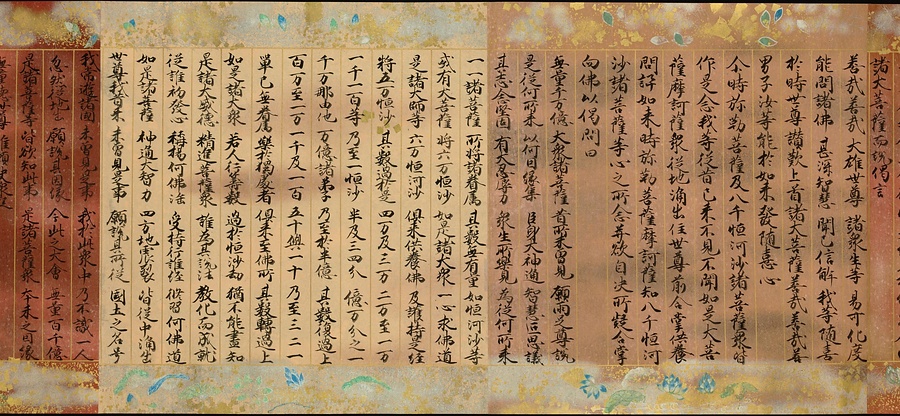 諸大菩薩而說偈言
善哉善哉 大雄世尊 諸衆生等 易可化度
能問諸佛 甚深智慧 聞已信解 我等隨喜
於時世尊讚歎上首諸大菩薩善哉善哉善
男子汝等能於如來發隨喜心
尒時弥勒菩薩及八千恒河沙諸菩薩衆皆
作是念我等從昔已來不見不聞如是大菩
薩摩訶薩衆從地涌出住世尊前合掌供養
問訊如來時弥勒菩薩摩訶薩知八千恒河
沙諸菩薩等心之所念并欲自决所疑合掌
向佛以偈問曰
無量千万億 大衆諸菩薩 昔所未曽見 願兩足尊說
是從何所來 以何因緣集 巨身大神通 智慧叵思議
其志念堅固 有大忍辱力 衆生所樂見 為從何所來
一一諸菩薩 所將諸眷属 其數無有量 如恒河沙等
或有大菩薩 將六万恒沙 如是諸大衆 一心求佛道
是諸大師等 六万恒河沙 俱來供養佛 及護持是經
將五万恒沙 其數過於是 四万及三万 二万至一万
一千一百等 乃至一恒沙 半及三四分 億万分之一
千万那由他 万億諸弟子 乃至於半億 其數復過上
百万至一万 一千及一百 五十與一十 乃至三二一
單己無眷属 樂於獨處者 俱來至佛所 其數轉過上
如是諸大衆 若人行籌數 過於恒沙劫 猶不能盡知
是諸大威德 精進菩薩衆 誰為其說法 教化而成就
從誰初發心 稱揚何佛法 受持行誰經 修習何佛道
如是諸菩薩 神通大智力 四方地震裂 皆從中涌出
世尊我昔來 未曽見是事 願說其所從 國土之名号
我常遊諸國 未曽見是事 我於此衆中 乃不識一人
忽然從地出 願說其因緣 今此之大會 無量百千億
是諸菩薩等 皆欲知此事 是諸菩薩衆 本末之因緣